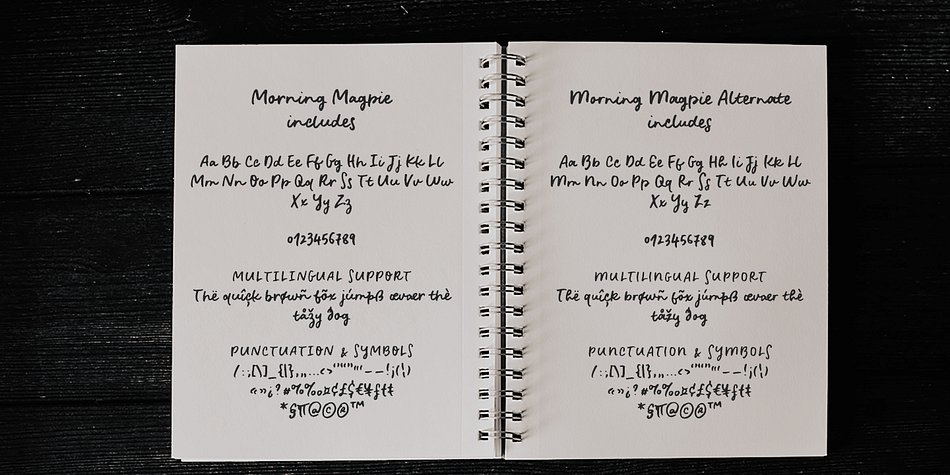 Morning Magpie
includes
Aa Bb Cc Dd Ee Ff Gg Hh Ii Jj Kk Ll
Mm Nn Oo Pp Qq Rr Ss Tt Uu Vv Ww
Xx Yy Zz
0123456789
MULTILINGUAL SUPPORT
Thë quîçk brøwñ fõx júmpß œvaer thè
tåžy ðog
PUNCTUATION & SYMBOLS
/:;[\]_{|},„…‹›''""'"–—!¡(¦)
«»¿?#%‰¤¢£$€¥ƒ†‡
*§¶@©®™
Morning Magpie Alternate
includes
Aa Bb Cc Dd Ee Ff Gg Hh Ii Jj Kk Ll
Mm Nn Oo Pp Qq Rr Ss Tt Uu Vv Ww
Xx Yy Zz
0123456789
MULTILINGUAL SUPPORT
Thë quîçk brøwñ fõx júmpß œvaer thè
tåžy ðog
PUNCTUATION & SYMBOLS
/:;[\]_{|},„…‹›''""'"–—!¡(¦)
«»¿?#%‰¤¢£$€¥ƒ†‡
*§¶@©®™